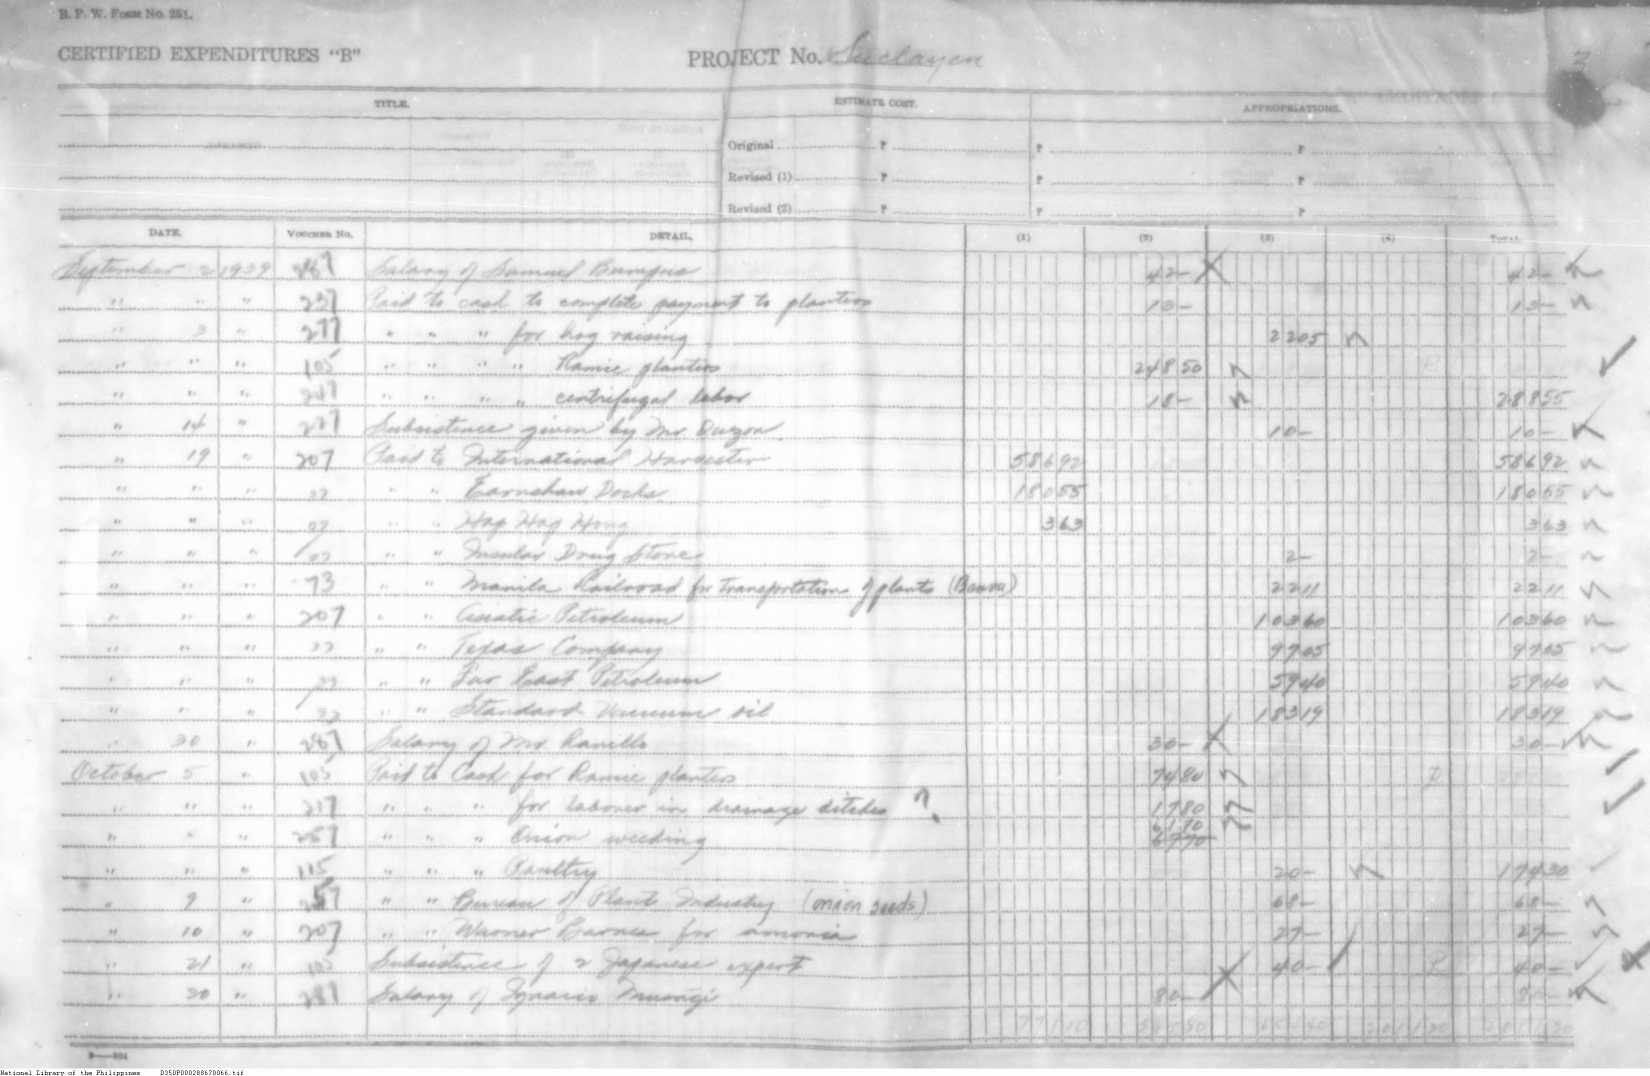 B. P. W. Form No. 251.
CERTIFIED EXPENDITURES "B" PROJECT No. Suclayen
TITLE. ESTIMATE COST. APPROPRIATIONS.
Original ₱ ₱ ₱
Revised (1) ₱ ₱ ₱
Revised (2) ₱ ₱ ₱
DATE. VOUCHER No. DETAIL. (1) (2) (3) (4) TOTAL
September 2 1939 287 Salary of Samuel Bumgus 42- 42-
" " " 237 Paid to cash to complete payment to planters 13- 13-
" 3 " 277 " " " for hog raising 2205
" " " 105 " " " " Ramie planters 24850
" " " 247 " " " " centrifugal labor 18- 28855
" 14 " 277 Subsistence given by Mr Duzon 10- 10-
" 19 " 207 Paid to International Harvester 58692 58692
" " " " " Earnshaw Docks 18055 18055
" " " " " Hag Hag Hong 363 363
" " " " " Insular Drug Store 2- 2-
" " " 73 " " Manila Railroad for transportation of plants (Banna) 2211 2211
" " " 207 " " Asiatic Petroleum 10360 10360
" " " " " Texas Company 9705 9705
" " " " " Far East Petroleum 5940 5940
" " " " " Standard Vacuum oil 18319 18319
" 30 " 287 Salary of Mr. Ranillo 30- 30-
October 5 " 105 Paid to Cash for Ramie planters 7480
" " " 217 " " " for laborer in drainage ditches ? 1780
" " " 257 " " " Onion weeding 6170 6770
" " " 115 " " " Poultry 20- 17430
" 9 " 257 " " Bureau of Plant Industry (onion seeds) 68- 68-
" 10 " 207 " " Warner Barnes for amonia 27- 27-
" 21 " 105 Subsistence of 2 Japanese expert 40- 40-
" 30 " 287 Salary of Ignacio 80- 80-
National Library of the Philippines D350P000288670066.tif